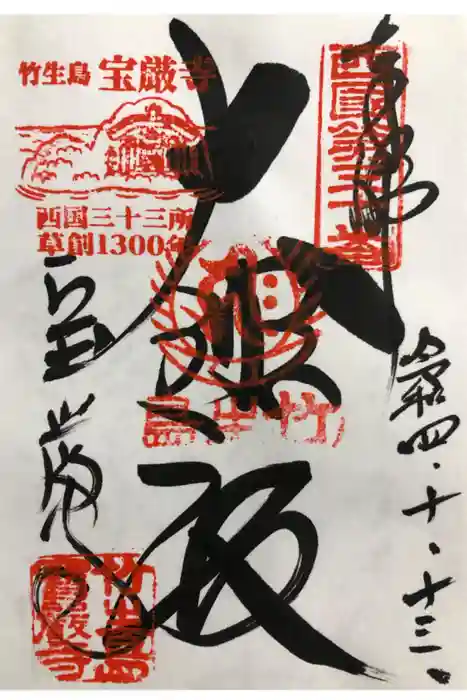 奉拝
西国第三十番
令和四・十・十三
大悲殿
竹生島
竹生島 宝厳寺
西国三十三所
草創1300年
宝厳寺
竹生島
寶嚴寺